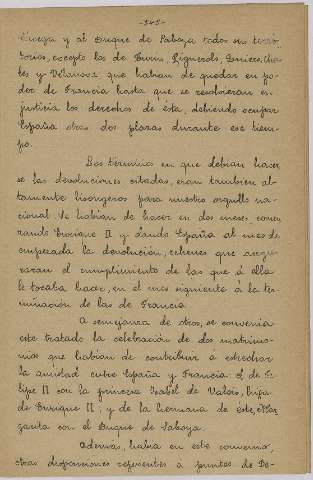 -345-
y al Duque de Saboya todos sus terri
torios, excepto los de Turín, Pignerols, Quiers, Chi
bes y Vilanova que habían de quedar en po
der de Francia hasta que se resolvieran en
justicia los derechos de ésta, debiendo ocupar
España otras dos plazas durante ese tiem
po.
Los términos en que debían hacer
se las devoluciones citadas, eran también al
tamente lisongeros para nuestro orgullo na
cional. Se habían de hacer en dos meses, comen
zando Enrique II y dando España al mes de
empezada la devolución, rehenes que asegu
raran el cumplimiento de las que á ella
le tocaba hacer, en el mes siguiente á la ter
minación de las de Francia.
A semejanza de otros, se convenía
este tratado la celebración de dos matrimo
nios que habían de contribuir á estrechar
la amistad entre España y Francia: el de Fe
lipe II con la princesa Isabel de Valois, hija
de Enrique II; y de la hermana de éste, Mar
garita con el Duque de Saboya.
Además, había en este convenio,
otras disposiciones referentes á puntos de De-